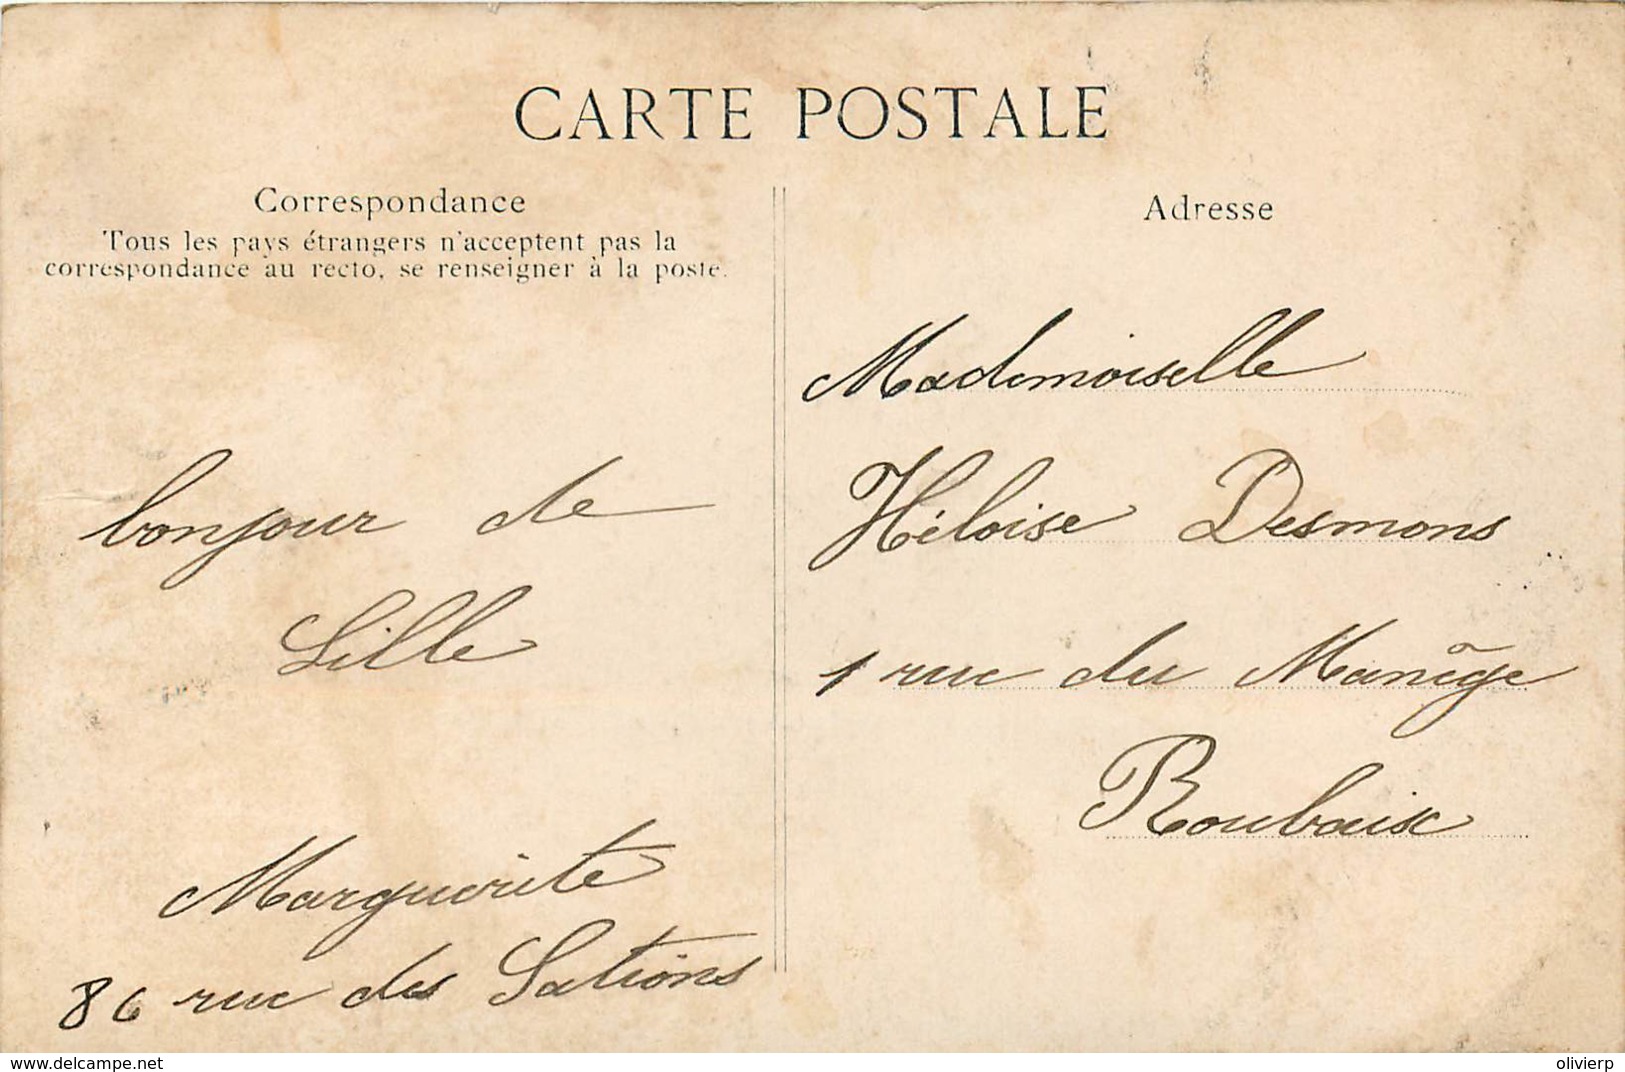 CARTE POSTALE
Correspondance
Tous les pays étrangers n'acceptent pas la
correspondance au recto, se renseigner à la poste.
bonjour de
Lille
Marguerite
86 rue des Sations
Adresse
Mademoiselle
Héloise Desmons
1 rue du Manège
Roubaix
www.delcampe.net
olivierp